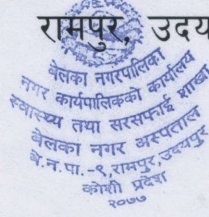 रामपुर, उदय
बेलका नगरपालिका
नगर कार्यपालिकाको कार्यालय
स्वास्थ्य तथा सरसफाई शाखा
बेलका नगर अस्पताल
बे.न.पा.-९,रामपुर,उदयपुर
कोशी प्रदेश
२०७७